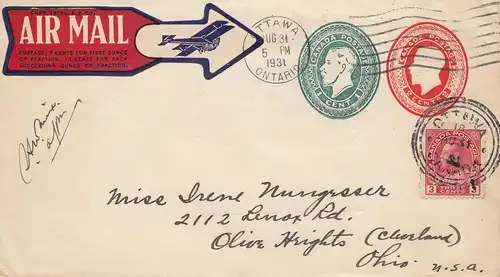 AIR MAIL
POSTAGE, 5 CENTS FOR FIRST OUNCE
OR FRACTION. 10 CENTS FOR EACH
SUCCEEDING OUNCE OR FRACTION.
OTTAWA
AUG 31
5 PM
1931
ONTARIO
CANADA POSTAGE
1 CENT 1
CANADA POSTAGE
2 CENTS 2
OTTAWA
CANADA POSTAGE
3 THREE 3
CENTS
Miss Irene Nungesser
2112 Lenox Rd.
Olive Heights (Cleveland)
Ohio.
U.S.A.